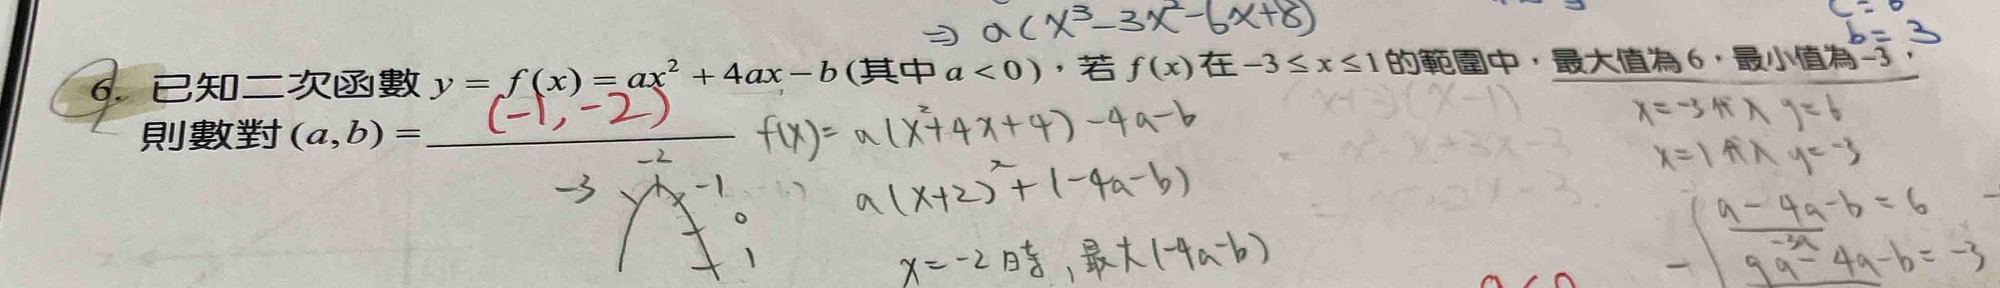 ⇒ a(x³-3x²-6x+8)
b=3
6. 已知二次函數 y = f(x) = ax² + 4ax − b (其中 a < 0)，若 f(x) 在 −3 ≤ x ≤ 1 的範圍中，最大值為 6，最小值為 −3，
則數對 (a, b) = (-1, -2)
f(x) = a(x²+4x+4) -4a-b
a(x+2)² + (-4a-b)
x=-2時，最大(-4a-b)
-3 -2 -1 0 1
x=-3代入 y=6
x=1代入 y=-3
a-4a-b=6
-3a
9a-4a-b=-3
a<0